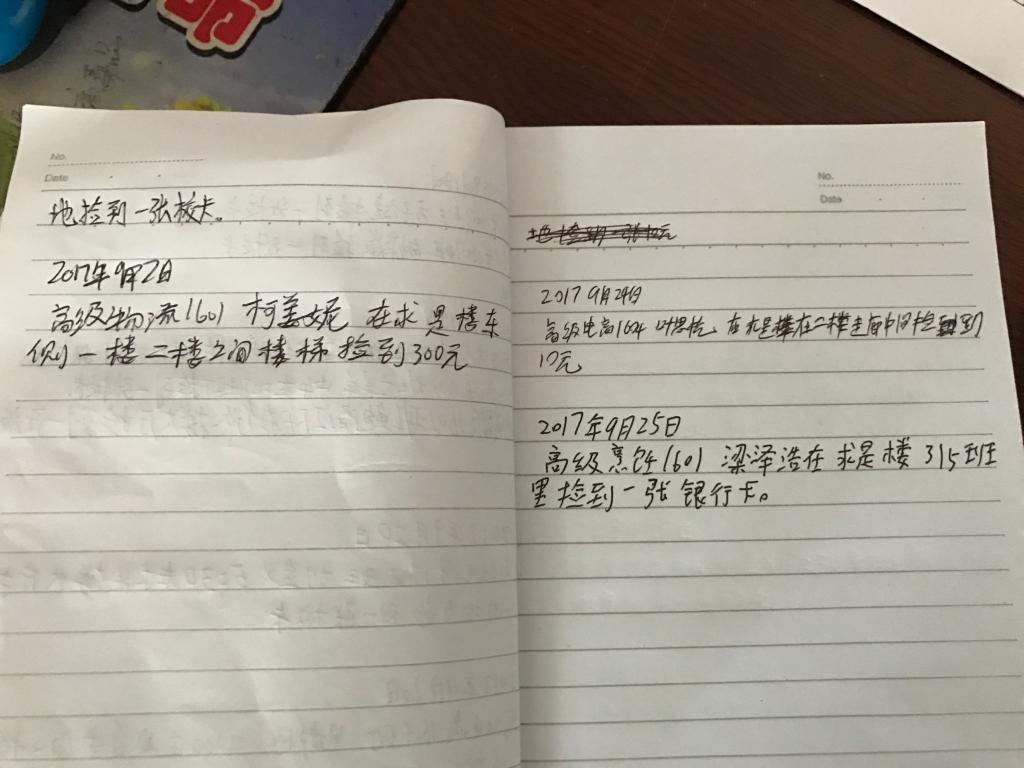 No.
Date
地捡到一张校卡。
2017年9月2日
高级物流1601 柯姜妮 在求是楼东
侧一楼二楼之间楼梯捡到300元
No.
Date
2017 9月24日
高级电商1604 叶思桄 在求是楼在二楼走廊中间捡到
17元
2017年9月25日
高级烹饪1601 梁泽浩在求是楼315班
里捡到一张银行卡。